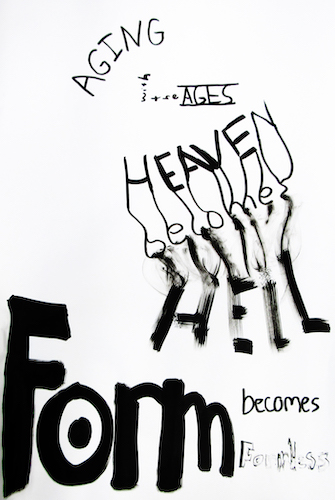 AGING
AGES
HEAVEN
becomes
HELL
Form
becomes
Formless